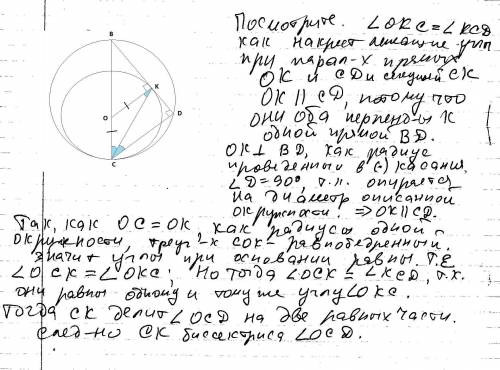 B
K
O
D
C
Посмотрите. ∠OKC = ∠KCD
как накрест лежащие углы
при парал-х прямых
OK и CD и секущей CK
OK ∥ CD, потому что
они оба перпенд-ы к
одной прямой BD.
OK ⊥ BD, как радиус
проведенный в (·) касания.
∠D = 90°, т.к. опирается
на диаметр описанной
окружности. ⇒ OK ∥ CD.
Так, как OC = OK как радиусы одной
окружности, треуг-к COK - равнобедренный.
значит углы при основании равны. т.е
∠OCK = ∠OKC; Но тогда ∠OCK = ∠KCD, т.к.
они равны одному и тому же углу ∠OKC.
Тогда CK делит ∠OCD на две равных части.
След-но CK биссектриса ∠OCD.